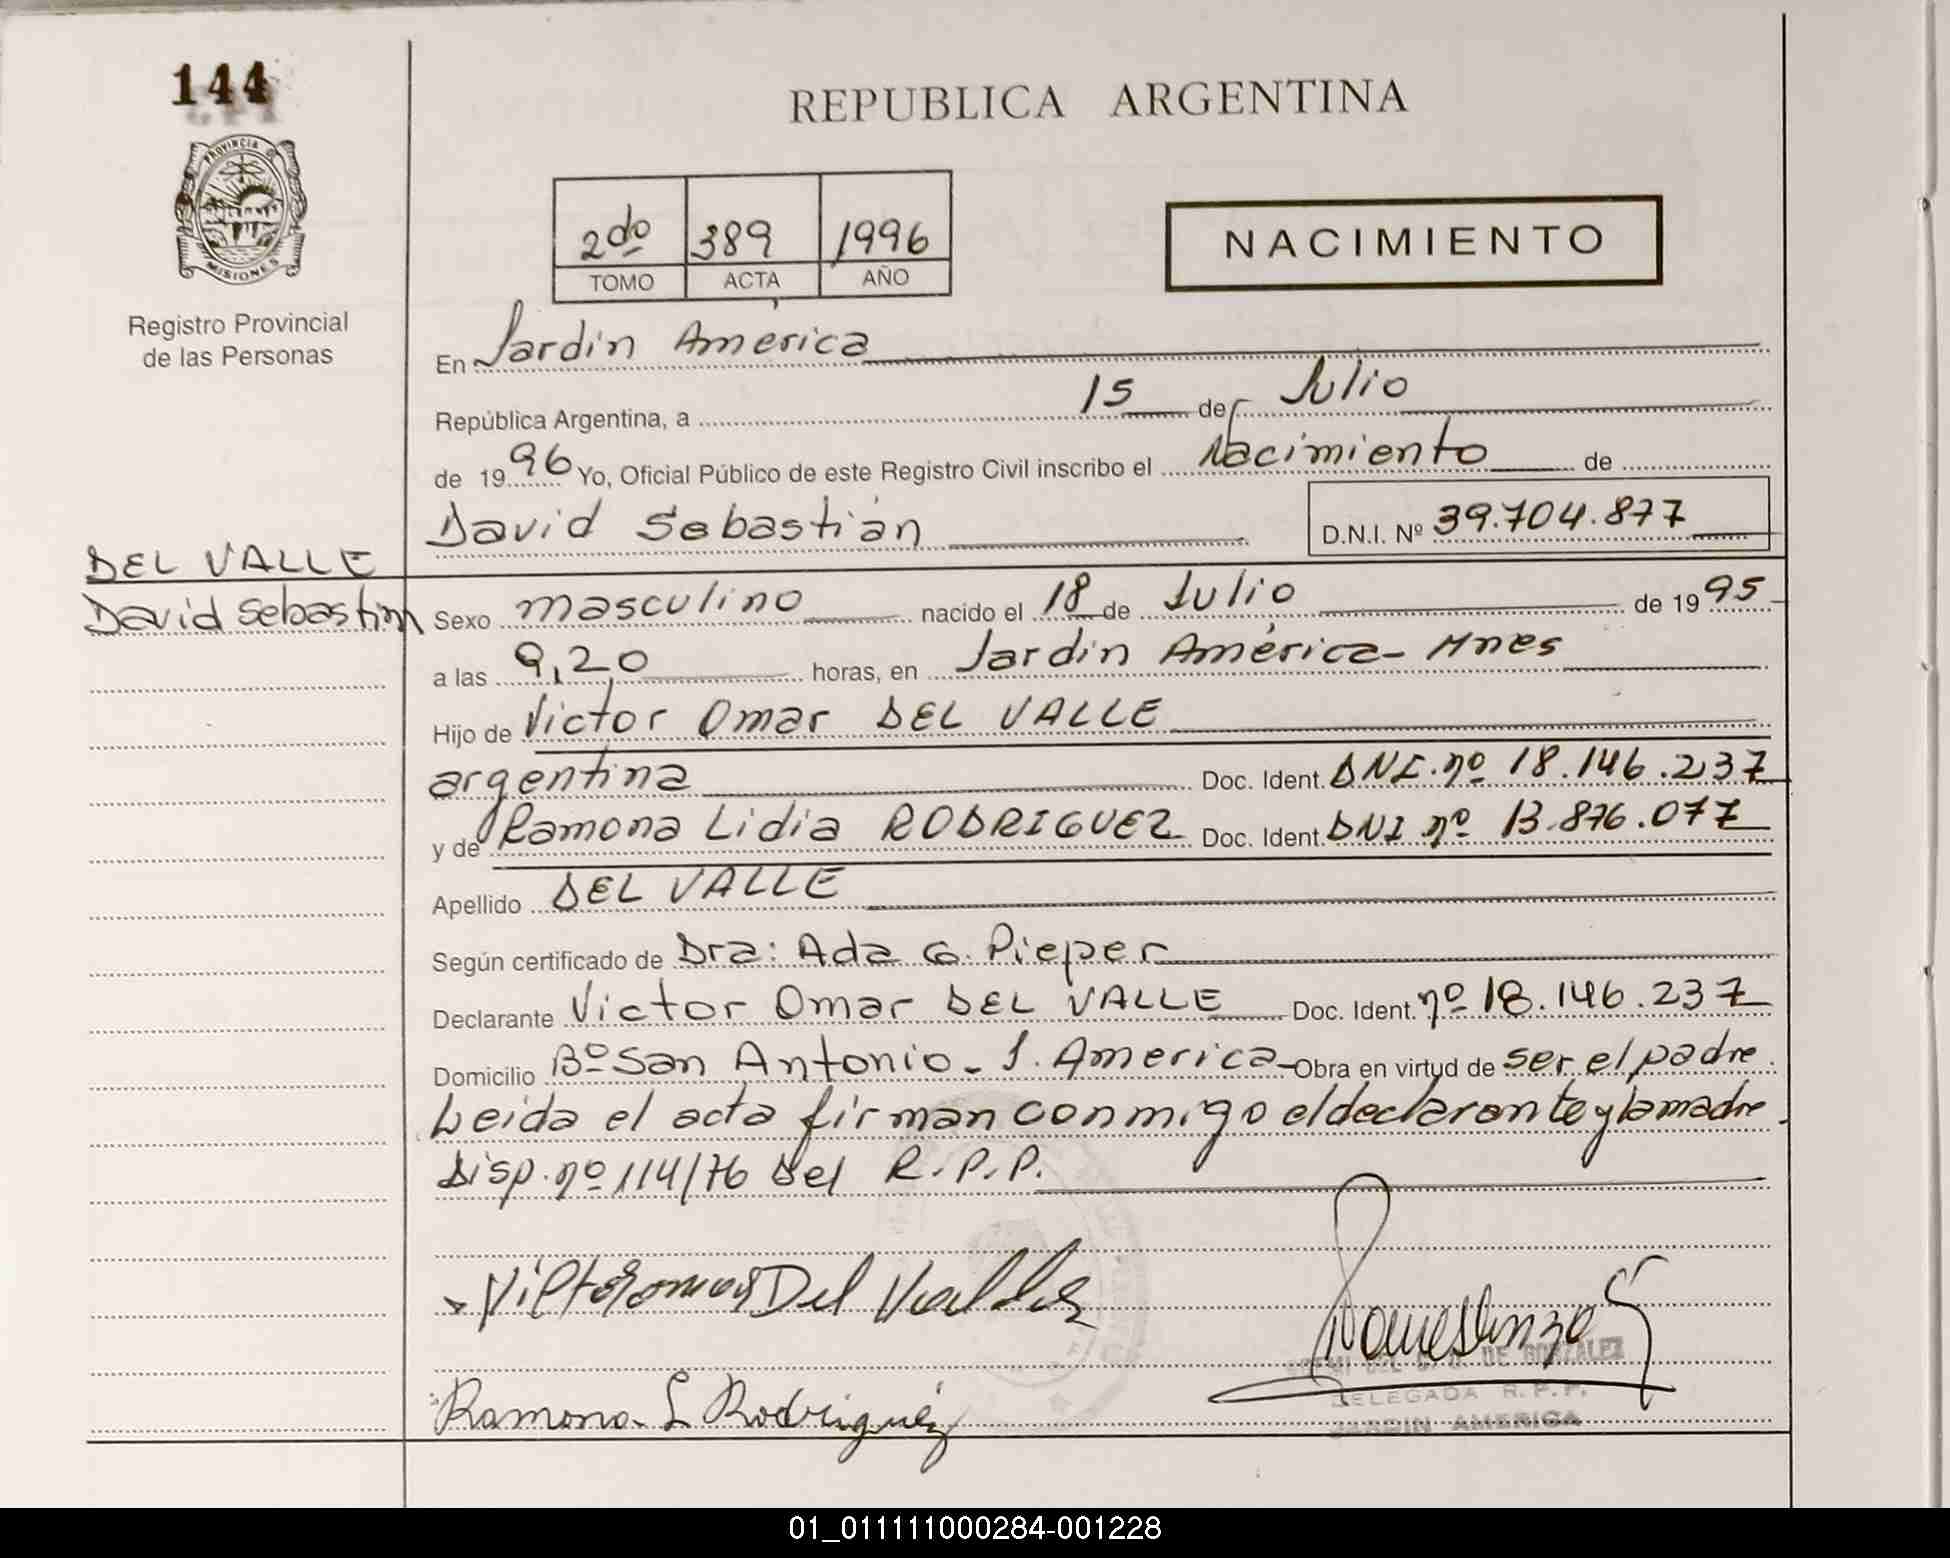 144
PROVINCIA DE
MISIONES
Registro Provincial
de las Personas
REPUBLICA ARGENTINA
2do 389 1996
TOMO ACTA AÑO
NACIMIENTO
En Jardín América
República Argentina, a 15 de Julio
de 1996 Yo, Oficial Público de este Registro Civil inscribo el Nacimiento de
David Sebastián D.N.I. Nº 39.704.877
DEL VALLE
David Sebastián
Sexo masculino nacido el 18 de Julio de 1995
a las 9,20 horas, en Jardín América - Mnes
Hijo de Victor Omar DEL VALLE
argentina Doc. Ident. DNI. nº 18.146.237
y de Ramona Lidia RODRIGUEZ Doc. Ident. DNI nº 13.876.077
Apellido DEL VALLE
Según certificado de Dra: Ada G. Pieper
Declarante Victor Omar DEL VALLE Doc. Ident. nº 18.146.237
Domicilio Bº San Antonio - J. America - Obra en virtud de ser el padre.
Leida el acta firman conmigo el declarante y la madre.
Disp. nº 114/76 Del R.P.P.
Victor Omar Del Valle
DE GONZALEZ
DELEGADA R.P.P.
JARDIN AMERICA
Ramona L Rodriguez
01_011111000284-001228